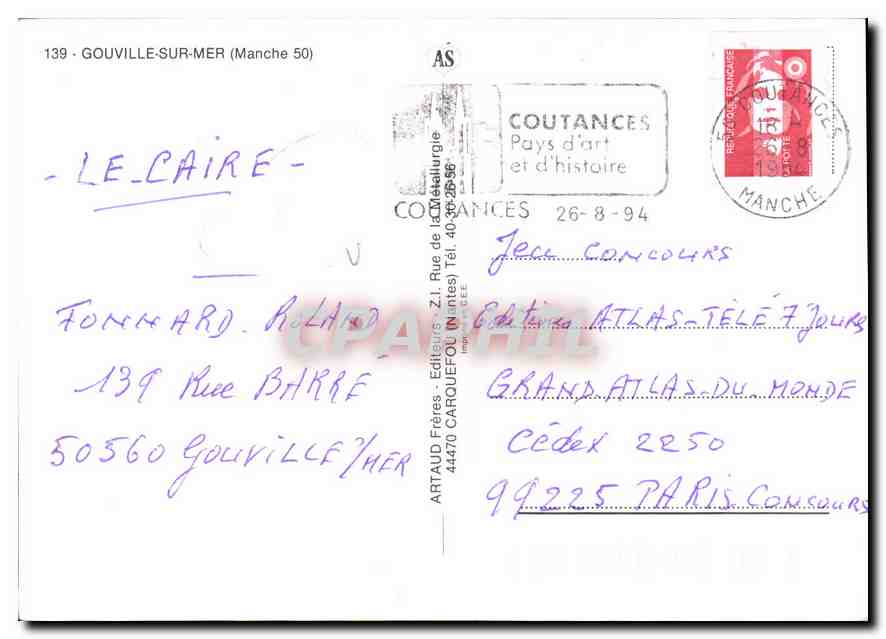 139 - GOUVILLE-SUR-MER (Manche 50)
AS
COUTANCES
Pays d'art
et d'histoire
COUTANCES 26-8-94
REPUBLIQUE FRANÇAISE
LA POSTE
COUTANCES
18 H
26 8
MANCHE
- LE CAIRE -
FONNARD. ROLAND
139 Rue BARRÉ
50560 GOUVILLE S/MER
ARTAUD Frères - Editeurs - Z.I. Rue de la Métallurgie
44470 CARQUEFOU (Nantes) Tél. 40-30-26-56
Imprimé en C.E.E.
CPAPHIL
Jeu CONCOURS
Editions ATLAS-TÉLÉ 7 JOURS
GRAND-ATLAS-DU-MONDE
Cédex 2250
99225 PARIS-CONCOURS